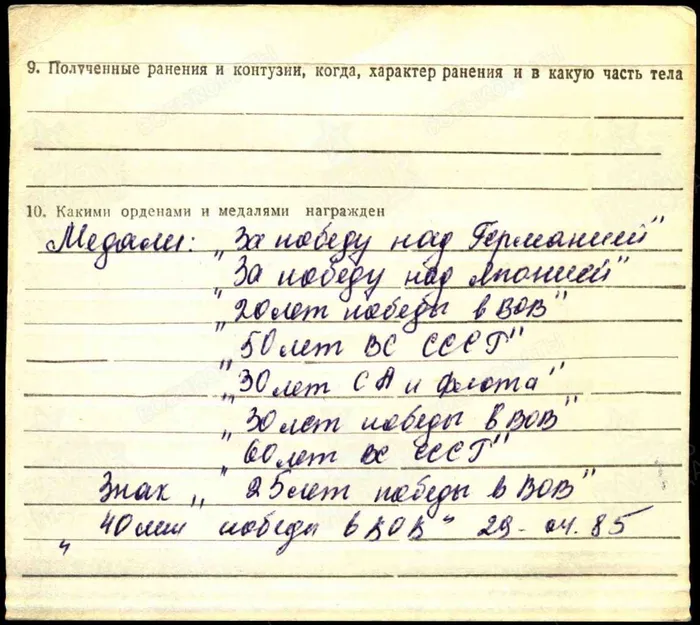 9. Полученные ранения и контузии, когда, характер ранения и в какую часть тела
10. Какими орденами и медалями награжден
Медали: „За победу над Германией"
„За победу над Японией"
„20 лет победы в ВОВ"
„50 лет ВС СССР"
„30 лет СА и флота"
„30 лет победы в ВОВ"
„60 лет ВС СССР"
Знак „25 лет победы в ВОВ"
„40 лет победы в ВОВ" 29-04.85